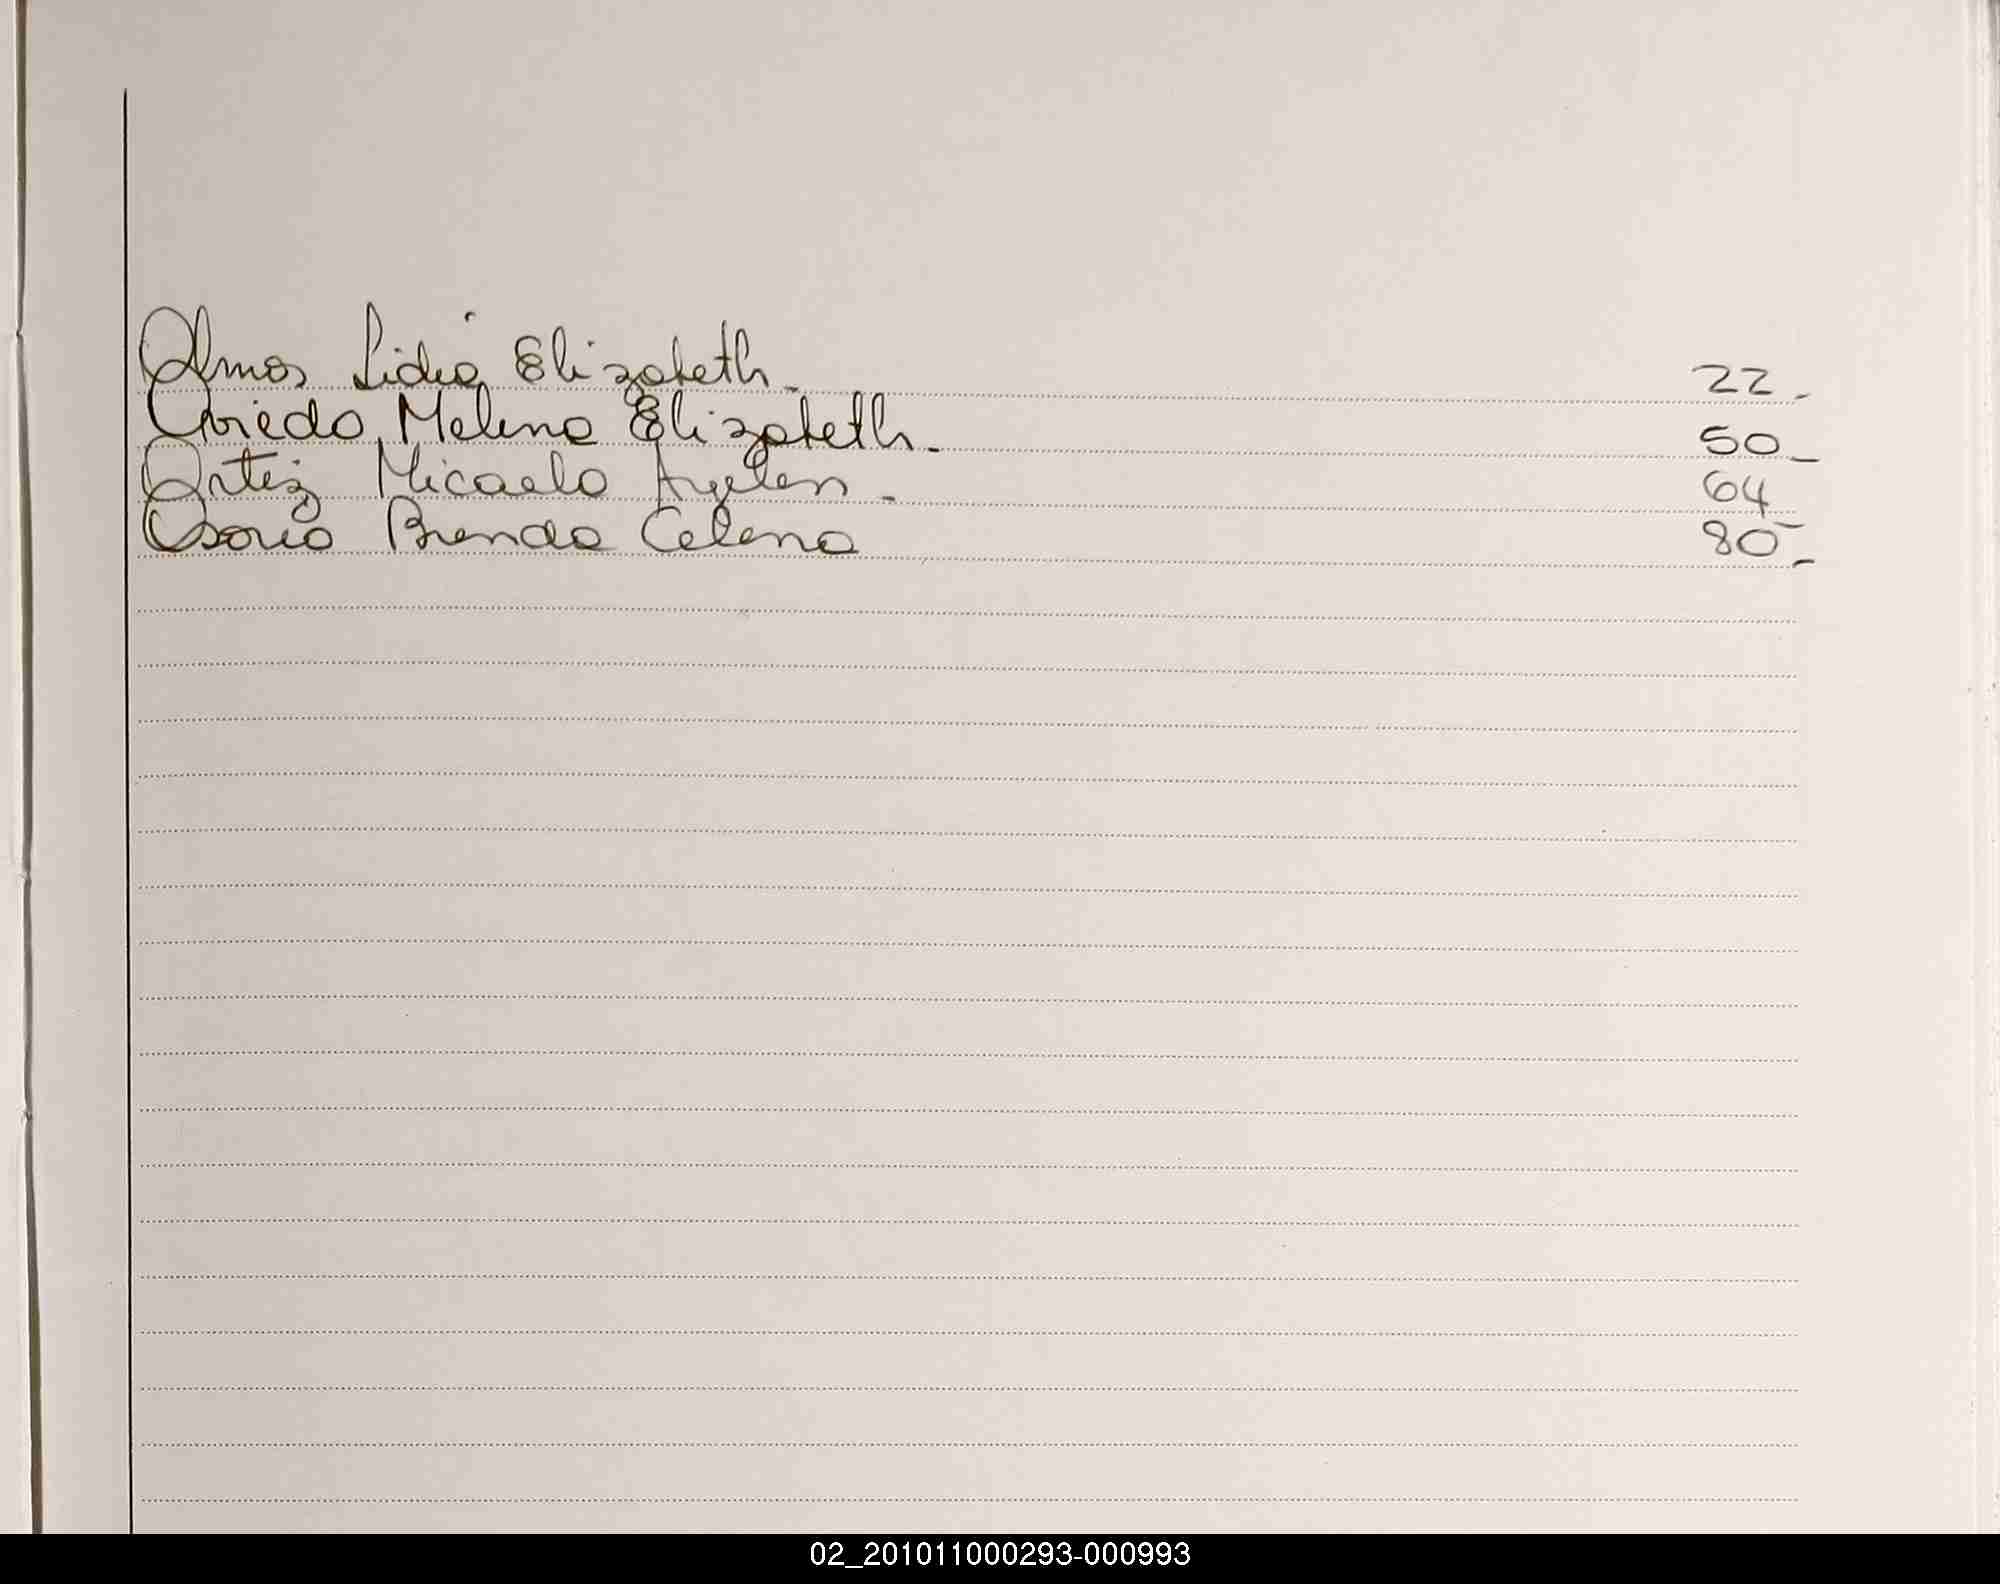 Olmos Lidia Elizabeth. 22.
Oviedo, Melina Elizabeth. 50_
Ortiz Micaela Ayelen. 64_
Osorio Brenda Celena 80_
02_201011000293-000993